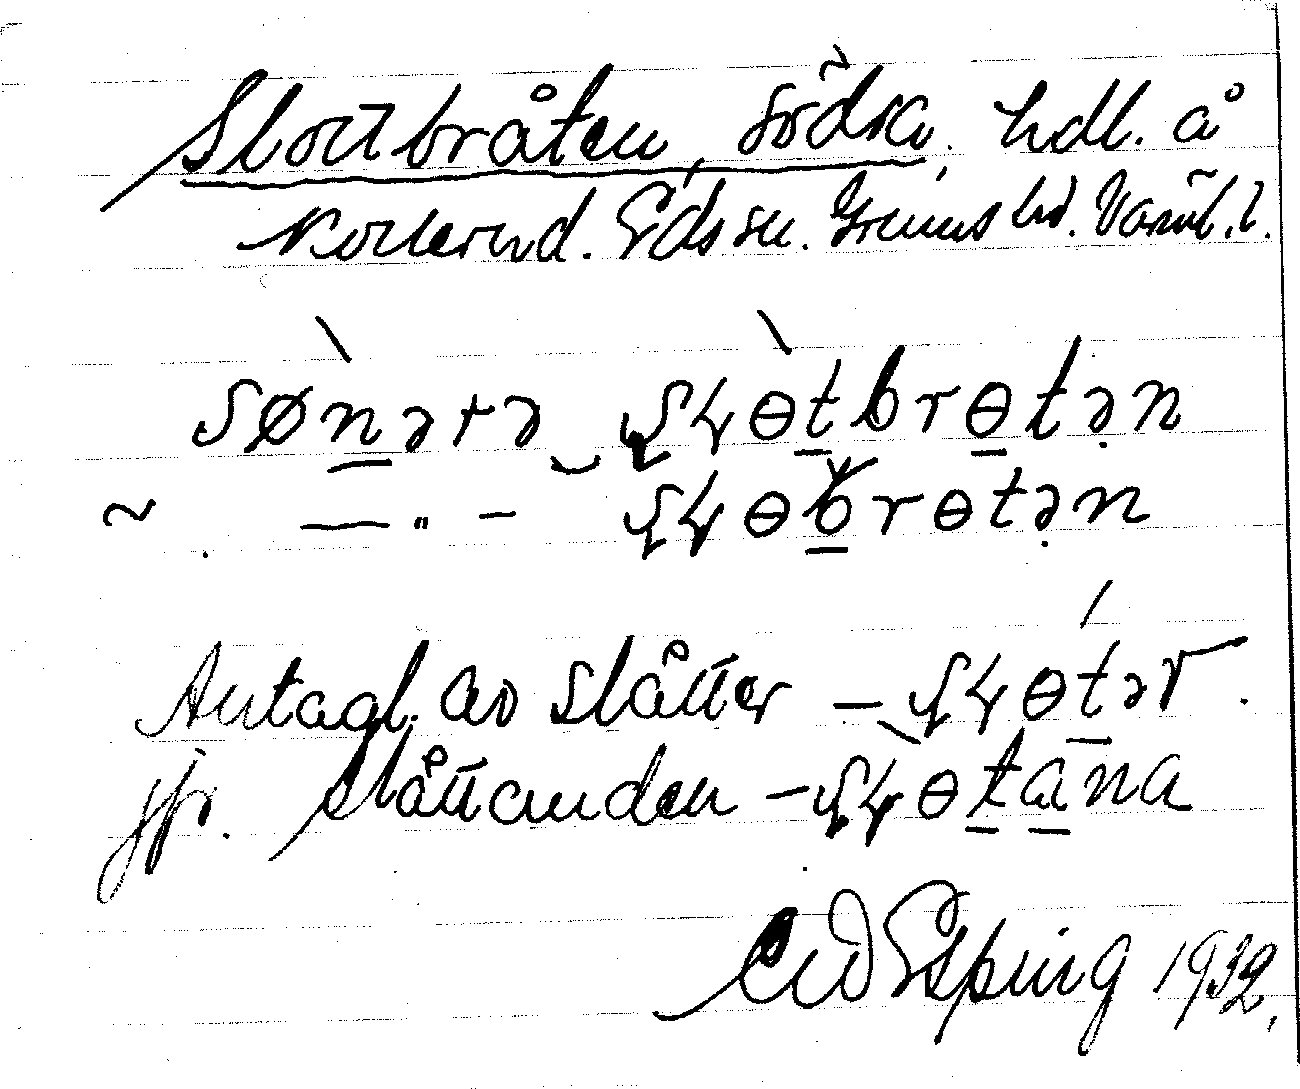 Slottbråten, södra, hdl. å
Norlernd. Eds sn. Grums hd. Värml. l.
sønərə ʂɽɵtbrɵtən
~ — " – ʂɽɵbrɵtən
Antagl. av slåtter – ʂɽɵtər.
jfr. slåttanden – ʂɽɵtana
Esping 1932.